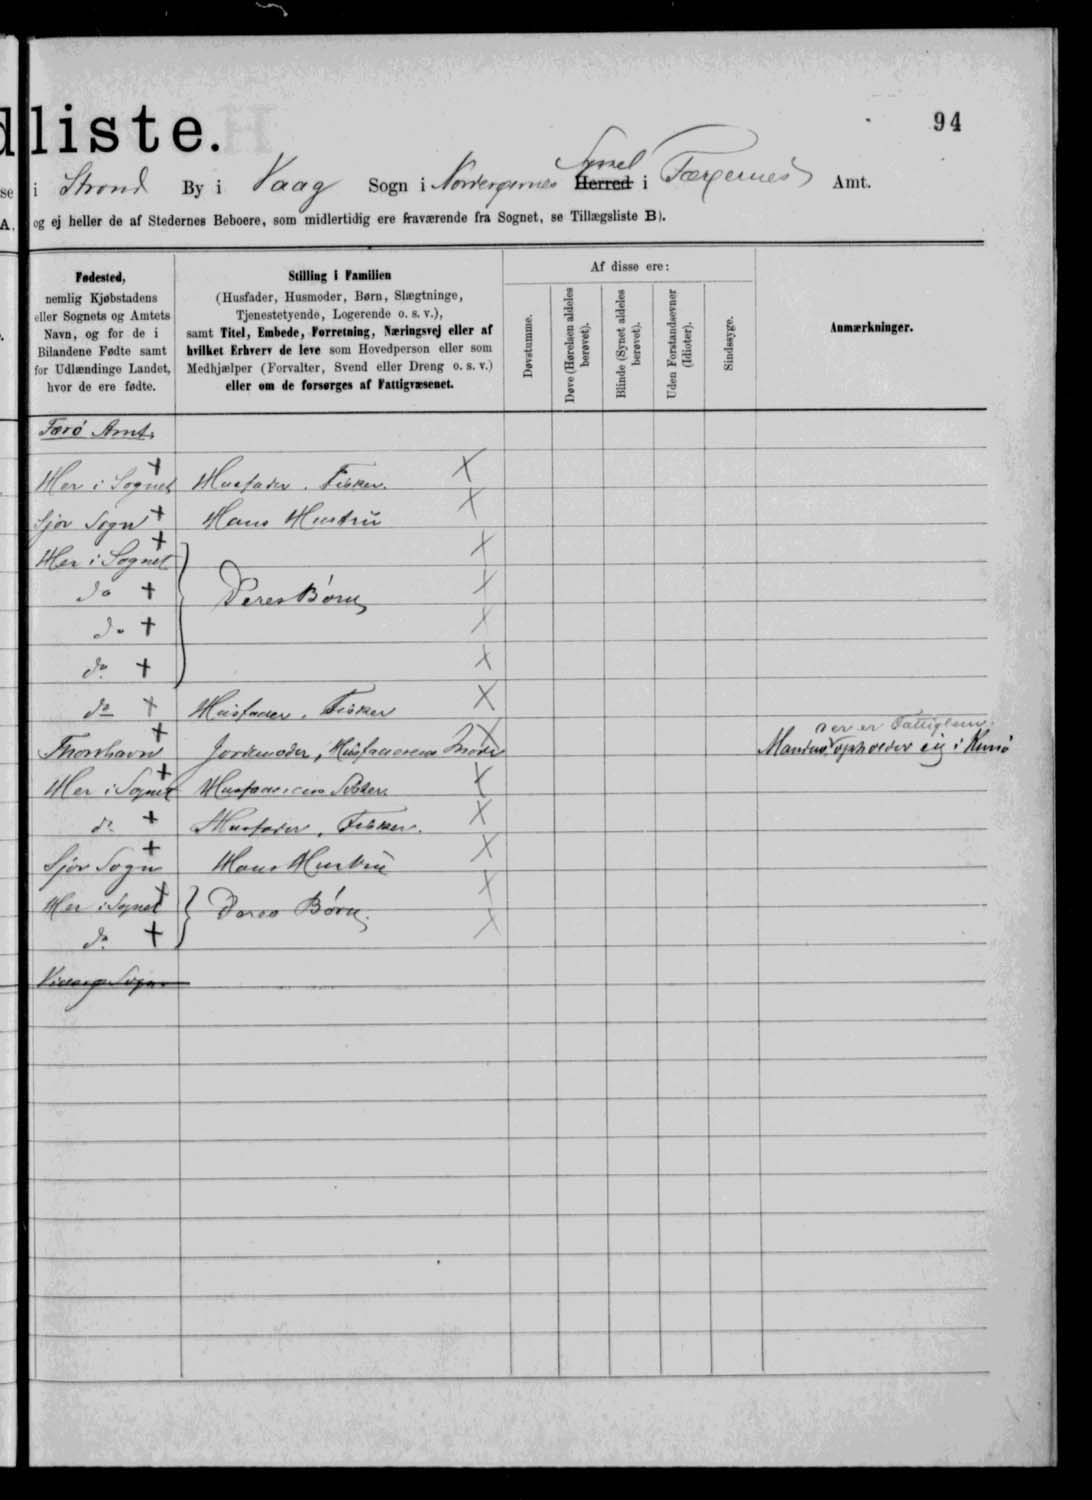 dliste.
94
se i Strond By i Vaag Sogn i Norderøernes Syssel Herred i Færøernes Amt.
A. og ej heller de af Stedernes Beboere, som midlertidig ere fraværende fra Sognet, se Tillægsliste B).
Fødested,
nemlig Kjøbstadens
eller Sognets og Amtets
Navn, og for de i
Bilandene Fødte samt
for Udlændinge Landet,
hvor de ere fødte.
Stilling i Familien
(Husfader, Husmoder, Børn, Slægtninge,
Tjenestetyende, Logerende o. s. v.),
samt Titel, Embede, Forretning, Næringsvej eller af
hvilket Erhverv de leve som Hovedperson eller som
Medhjælper (Forvalter, Svend eller Dreng o. s. v.)
eller om de forsørges af Fattigvæsenet.
Af disse ere:
Døvstumme.
Døve (Hørelsen aldeles
berøvet).
Blinde (Synet aldeles
berøvet).
Uden Forstandsevner
(Idioter).
Sindssyge.
Anmærkninger.
Færö Amt.
Her i Sognet + Husfader. Fisker. X
Sjov Sogn + Hans Hustru X
Her i Sognet + X
do + Deres Børn X
do + X
do + X
do + Husfader. Fisker X
Thorshavn + Jordemoder, Husfaderens Moder X Manden opholder sig i Kunö
der er Fattiglem
Her i Sognet + Husfaderens Söster X
do + Husfader, Fisker. X
Sjov Sogn + Hans Hustru X
Her i Sognet + Deres Børn. X
do + X